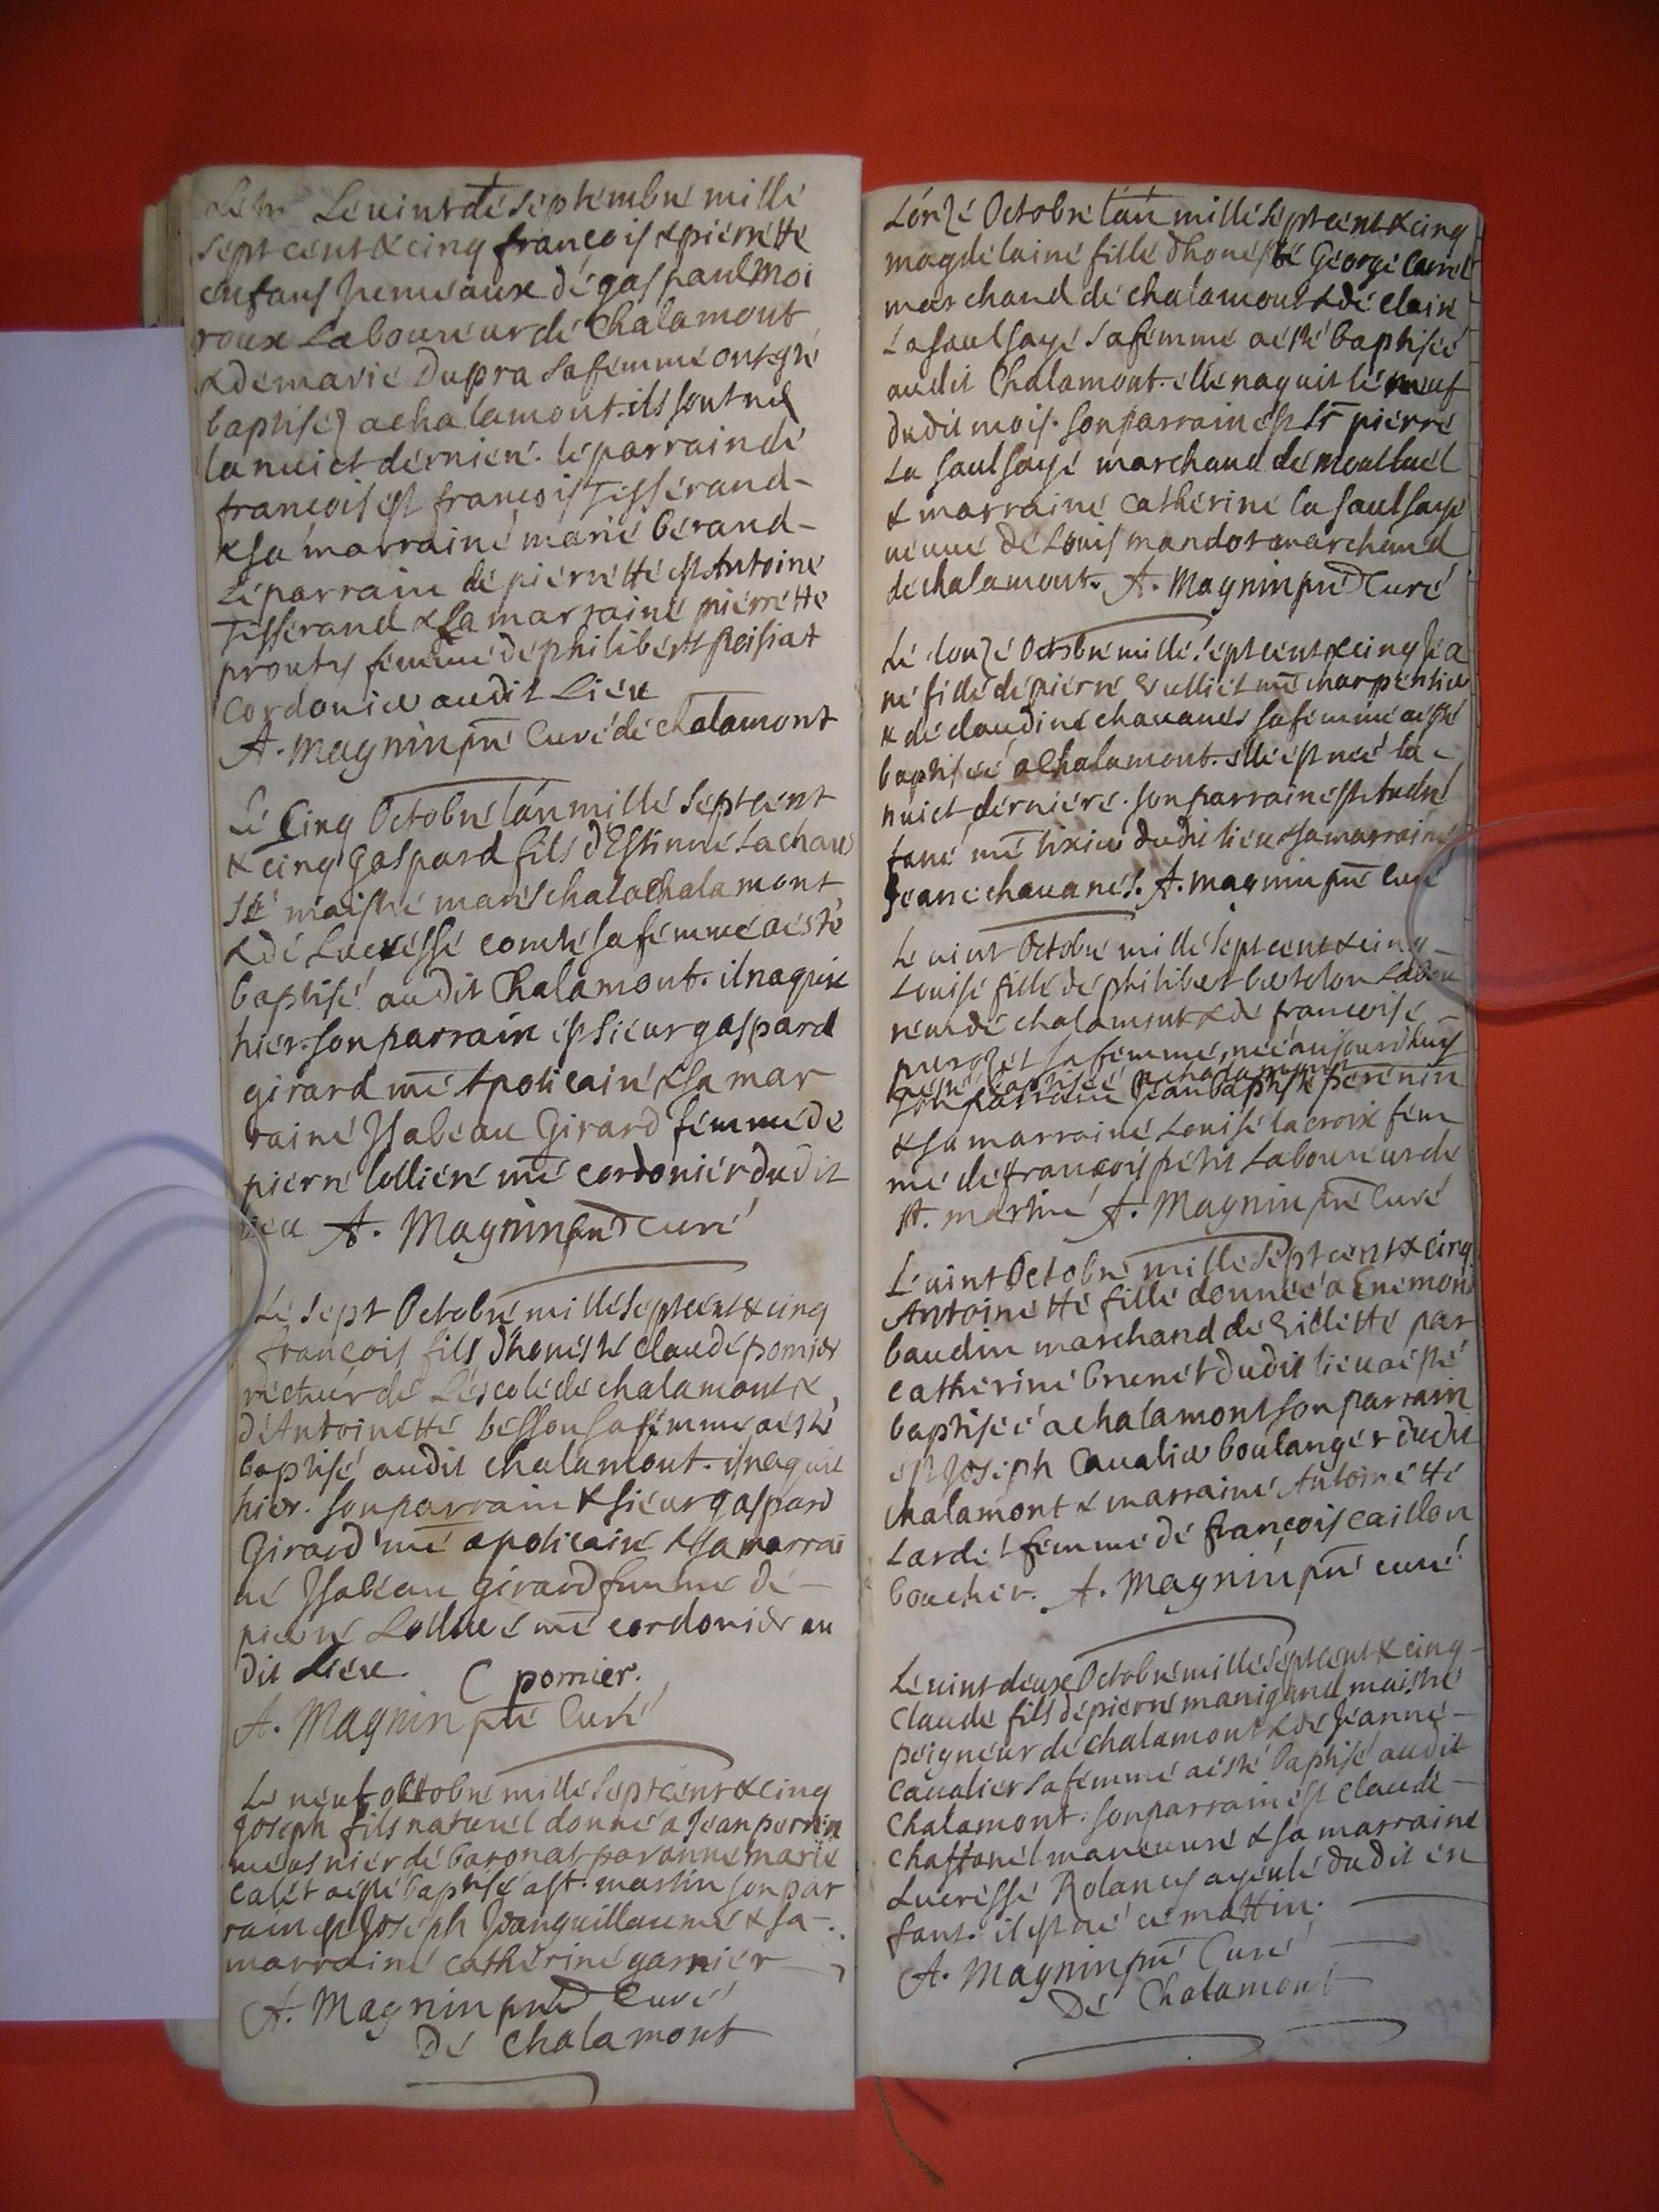 Le vint de septembre mille
sept cent & cinq francois & pierrette
enfans Jumeaux de gaspaul Moi
roux Laboureur de Chalamont
& de marie Dupra sa femme ont esté
baptisez a chalamont. ils sont nes
la nuict derniere. le parrain de
francois est francois Tisserand
& sa marraine marie berand
Le parrain de pierrette est Antoine
Tisserand & La marraine pierrette
prouty femme de philibert
Cordonier audit Lieu
A. Magnin pre Curé de chalamont
Le Cinq Octobre l'an mille sept cent
& cinq gaspard fils d'Estienne Lachau
maistre mareschal a chalamont
& de Lucresse comte sa femme a esté
baptisé audit Chalamont. il naquit
hier. son parrain est sieur gaspard
girard me Apoticaire & sa mar
raine Isabeau Girard femme de
pierre lolliere me cordonier dudit
lieu A. Magnin pre Curé
Le sept Octobre mille sept cent & cinq
francois fils d'honeste Claude pomier
recteur de L'escole de chalamont &
d'Antoinette besson sa femme a esté
baptisé audit chalamont. il naquit
hier. son parrain & sieur gaspard
Girard me apoticaire & sa marrai
ne Isabeau girard femme de
pierre Lolliere me cordonier au
dit Lieu. C pomier.
A. Magnin pre Curé
Le neuf octobre mille sept cent & cinq
Joseph fils naturel donné a Jean perrin
meusnier de baronat par anne marie
calet a esté baptisé a st. martin son par
rain est Joseph Jeanguillaume & sa
marraine catherine garnier
A. Magnin pre Curé
De Chalamont
L'onze Octobre l'an mille sept cent & cinq
magdelaine fille d'honeste George
marchand de chalamont & de claire
La saulsaye sa femme a esté baptisée
audit Chalamont. elle naquit le neuf
dudit mois. son parrain est Sr pierre
La saulsaye marchand de montluel
& marraine catherine la saulsaye
veuve de Louis mandot marchand
de chalamont. A. Magnin pre Curé
Le douze Octobre mille sept cent & cinq Jea
ne fille de pierre Vulliet me charpentier
& de claudine chavanes sa femme a esté
baptisée a Chalamont. elle est née la
nuict derniere. son parrain est Andre
fane me tixier dudit lieu & sa marraine
Jeane chavanes. A. Magnin pre Curé
Le vint Octobre mille sept cent & cinq
Louise fille de philibert bertelon Labou
reur de chalamont & de francoise
sa femme, née aujourdhuy
a esté baptisée a chalamont
son parrain Jean baptiste perenin
& sa marraine Louise lacroix fem
me de francois petit Laboureur de
st. martin A. Magnin pre Curé
Le vint Octobre mille sept cent & cinq
Antoinette fille donnée a Enemond
baudin marchand de Villette par
catherine brunet dudit lieu a esté
baptisée a chalamont son parrain
est Joseph Cavalier boulanger dudit
chalamont & marraine Antoinette
Lardet femme de francois caillon
boucher. A. Magnin pre curé
Le vint deux Octobre mille sept cent & cinq
Claude fils de pierre manigand maistre
peigneur de chalamont & de Jeanne
Cavalier sa femme a esté baptisé audit
Chalamont. son parrain est claude
chaffanel maneuvre & sa marraine
Lucresse Rolancy ayeule dudit en
fant. il est né ce mattin.
A. Magnin pre Curé
De Chalamont